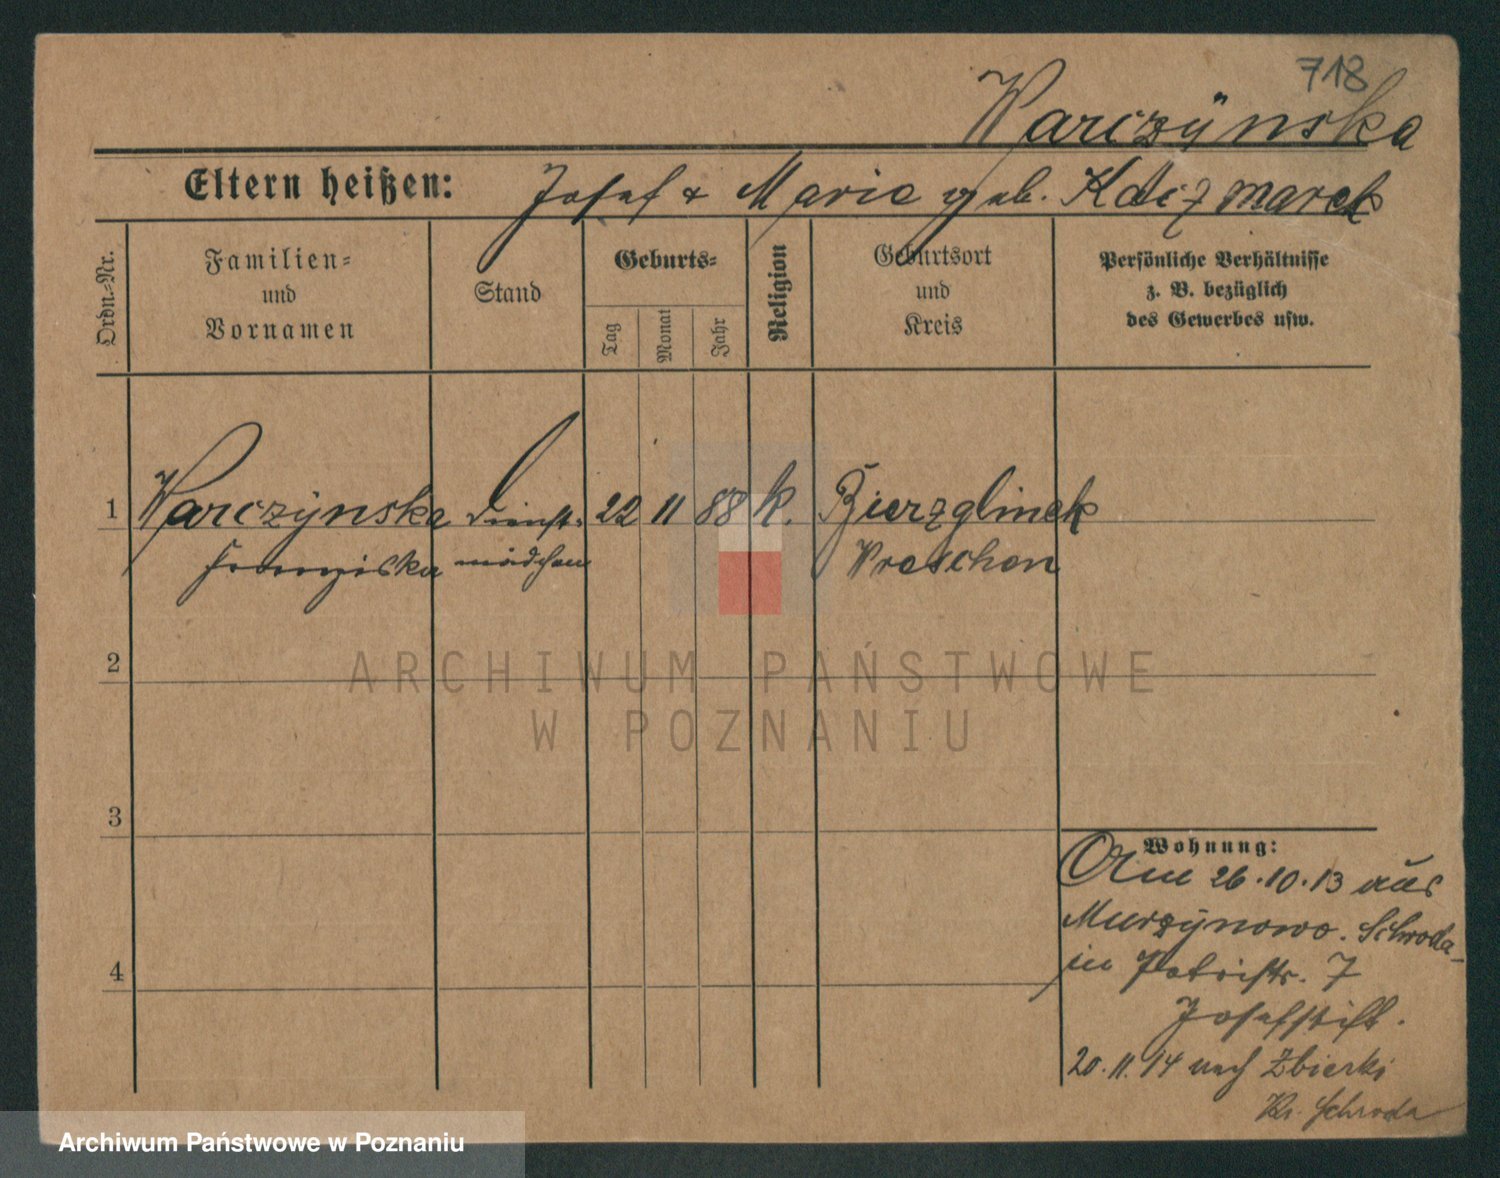 718
Warczÿnska
Eltern heißen: Josef & Marie geb. Kaczmarek
Ordn.-Nr.
Familien-
und
Vornamen
Stand
Geburts-
Tag
Monat
Jahr
Religion
Geburtsort
und
Kreis
Persönliche Verhältnisse
z. B. bezüglich
des Gewerbes usw.
1 Warczÿnska Dienst- 22 11 88 k. Bierzglinek
Franziska mädchen Wreschen
ARCHIWUM PAŃSTWOWE
W POZNANIU
2
3
4
Wohnung:
Am 26.10.13 aus
Murzÿnowo. Schroda
in Petristr. 7
Josefstift.
20.11.14 nach Zbierki
Kr. Schroda
Archiwum Państwowe w Poznaniu